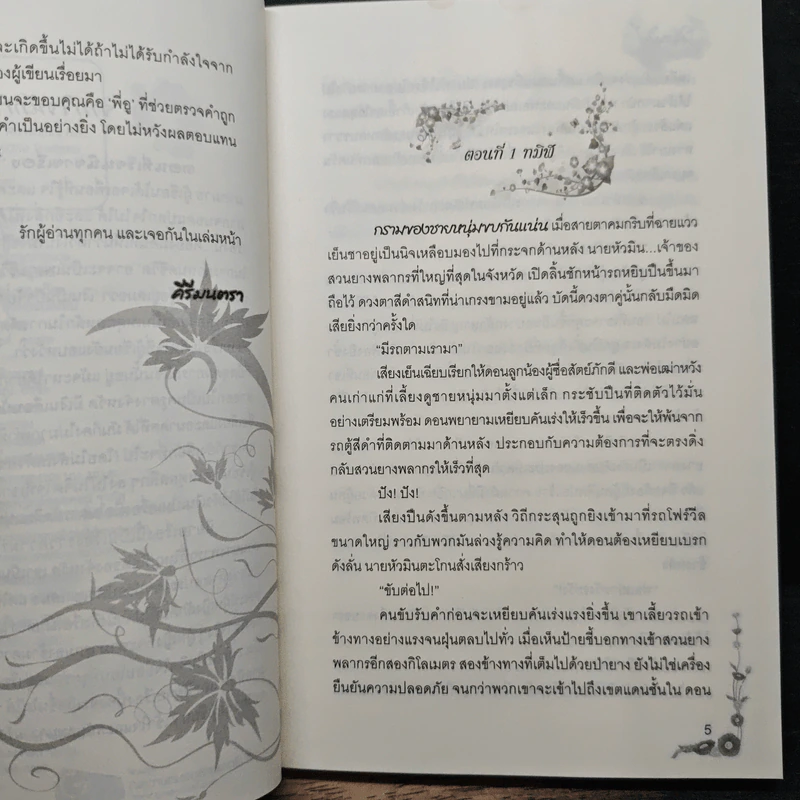 ละเกิดขึ้นไม่ได้ถ้าไม่ได้รับกำลังใจจาก
องผู้เขียนเรื่อยมา
นจะขอบคุณคือ ‘พี่อู’ ที่ช่วยตรวจคำถูก
คำเป็นอย่างยิ่ง โดยไม่หวังผลตอบแทน
รักผู้อ่านทุกคน และเจอกันในเล่มหน้า
คีรีมนตรา
ตอนที่ 1 ทมิฬ
กรามของชายหนุ่มขบกันแน่น เมื่อสายตาคมกริบที่ฉายแวว
เย็นชาอยู่เป็นนิจเหลือบมองไปที่กระจกด้านหลัง นายหัวมิน...เจ้าของ
สวนยางพลากรที่ใหญ่ที่สุดในจังหวัด เปิดลิ้นชักหน้ารถหยิบปืนขึ้นมา
ถือไว้ ดวงตาสีดำสนิทที่น่าเกรงขามอยู่แล้ว บัดนี้ดวงตาคู่นั้นกลับมืดมิด
เสียยิ่งกว่าครั้งใด
“มีรถตามเรามา”
เสียงเย็นเฉียบเรียกให้ดอนลูกน้องผู้ซื่อสัตย์ภักดี และพ่อเฒ่าหวัง
คนเก่าแก่ที่เลี้ยงดูชายหนุ่มมาตั้งแต่เล็ก กระชับปืนที่ติดตัวไว้มั่น
อย่างเตรียมพร้อม ดอนพยายามเหยียบคันเร่งให้เร็วขึ้น เพื่อจะให้พ้นจาก
รถตู้สีดำที่ติดตามมาด้านหลัง ประกอบกับความต้องการที่จะตรงดิ่ง
กลับสวนยางพลากรให้เร็วที่สุด
ปัง! ปัง!
เสียงปืนดังขึ้นตามหลัง วิถีกระสุนถูกยิงเข้ามาที่รถโฟร์วีล
ขนาดใหญ่ ราวกับพวกมันล่วงรู้ความคิด ทำให้ดอนต้องเหยียบเบรก
ดังลั่น นายหัวมินตะโกนสั่งเสียงกร้าว
“ขับต่อไป!”
คนขับรับคำก่อนจะเหยียบคันเร่งแรงยิ่งขึ้น เขาเลี้ยวรถเข้า
ข้างทางอย่างแรงจนฝุ่นตลบไปทั่ว เมื่อเห็นป้ายชี้บอกทางเข้าสวนยาง
พลากรอีกสองกิโลเมตร สองข้างทางที่เต็มไปด้วยป่ายาง ยังไม่ใช่เครื่อง
ยืนยันความปลอดภัย จนกว่าพวกเขาจะเข้าไปถึงเขตแดนชั้นใน ดอน
5